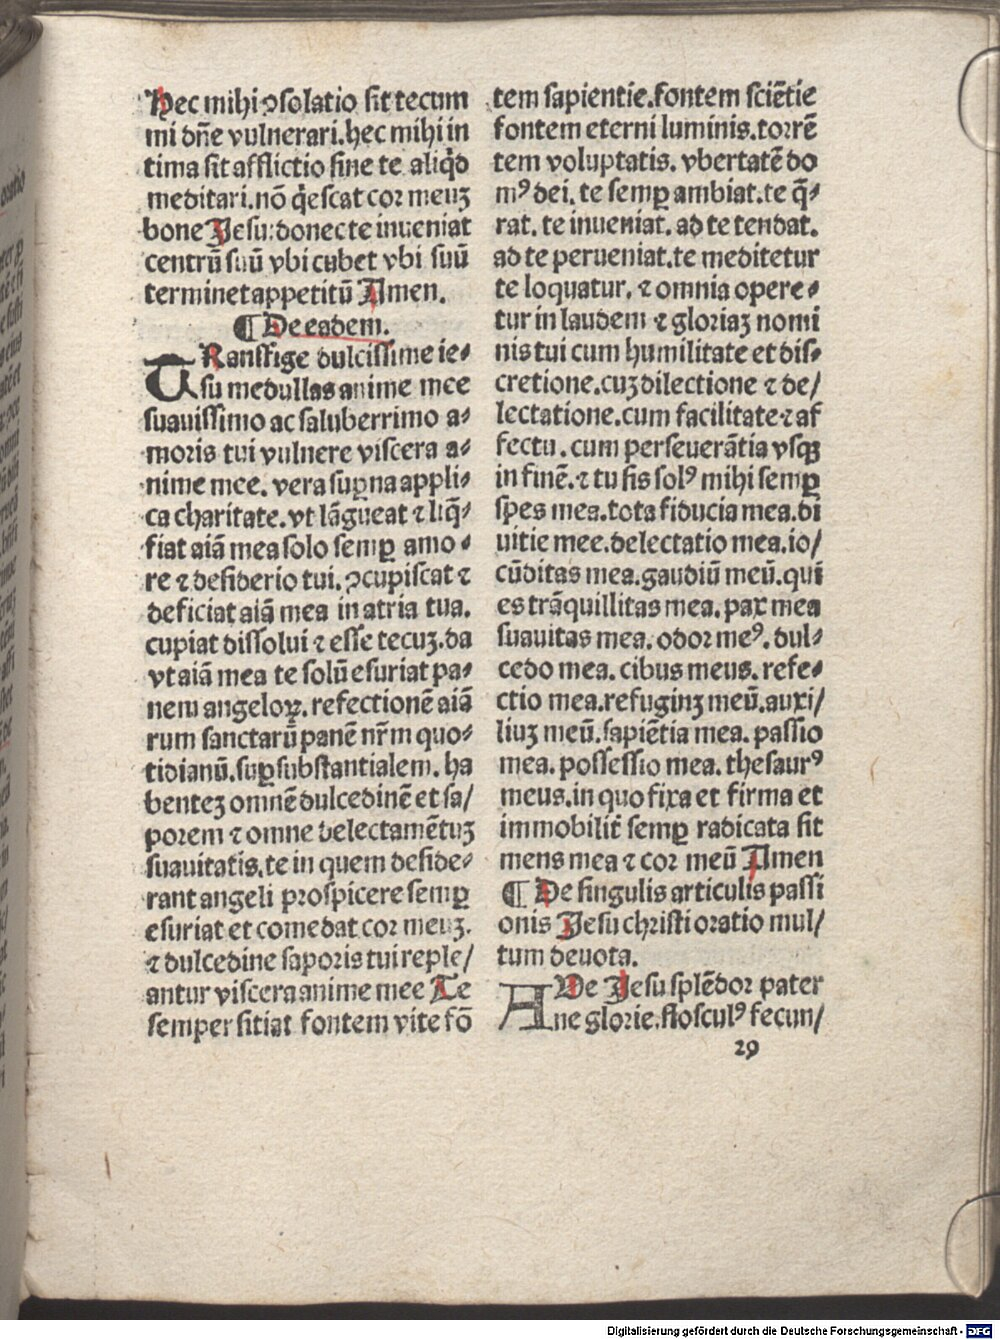 Hec mihi ꝯsolatio sit tecum
mi dn̄e vulnerari.hec mihi in
tima sit afflictio sine te aliq̇d
meditari.nō q̇escat cor meuꝫ
bone Jesu:donec te inueniat
centrū suū vbi cubet vbi suū
terminet appetitū Amen.
¶ De eadem.
TRansfige dulcissime ie⸗
su medullas anime mee
suauissimo ac saluberrimo a⸗
moris tui vulnere viscera a⸗
nime mee. vera suꝑna appli⸗
ca charitate. vt lāgueat ⁊ liq̄⸗
fiat aīā mea solo semꝑ amo⸗
re ⁊ desiderio tui. ꝯcupiscat ⁊
deficiat aīā mea in atria tua.
cupiat dissolui ⁊ esse tecuꝫ.da
vt aīā mea te solū esuriat pa⸗
nem angeloꝝ. refectionē aīā
rum sanctarū panē nr̄m quo⸗
tidianū.suꝑsubstantialem. ha
benteꝫ omnē dulcedinē et sa/
porem ⁊ omne delectamētuꝫ
suauitatis.te in quem deside⸗
rant angeli prospicere semꝑ
esuriat et comedat cor meuꝫ.
⁊ dulcedine saporis tui reple/
antur viscera anime mee Te
semper sitiat fontem vite fō
tem sapientie.fontem sciētie
fontem eterni luminis.torrē
tem voluptatis. vbertatē do
mꝰ dei. te semꝑ ambiat.te q̄⸗
rat. te inueniat. ad te tendat.
ad te perueniat.te meditetur
te loquatur. ⁊ omnia opere⸗
tur in laudem ⁊ gloriaꝫ nomi
nis tui cum humilitate et dis⸗
cretione.cuꝫ dilectione ⁊ de/
lectatione.cum facilitate ⁊ af
fectu. cum perseuerātia vsqꝫ
in finē.⁊ tu sis solꝰ mihi semꝑ
spes mea.tota fiducia mea.di
uitie mee.delectatio mea.io/
cūditas mea.gaudiū meū.qui
es trāquillitas mea. pax mea
suauitas mea. odor meꝰ. dul⸗
cedo mea. cibus meus. refe⸗
ctio mea.refugiuꝫ meū.auxi/
liuꝫ meū.sapiētia mea. passio
mea. possessio mea. thesaurꝰ
meus.in quo fixa et firma et
immobilit̄ semꝑ radicata sit
mens mea ⁊ cor meū Amen
¶ De singulis articulis passi
onis Jesu christi oratio mul/
tum deuota.
AVe Jesu splēdor pater
ne glorie.flosculꝰ fecun/
29
Digitalisierung gefördert durch die Deutsche Forschungsgemeinschaft - DFG